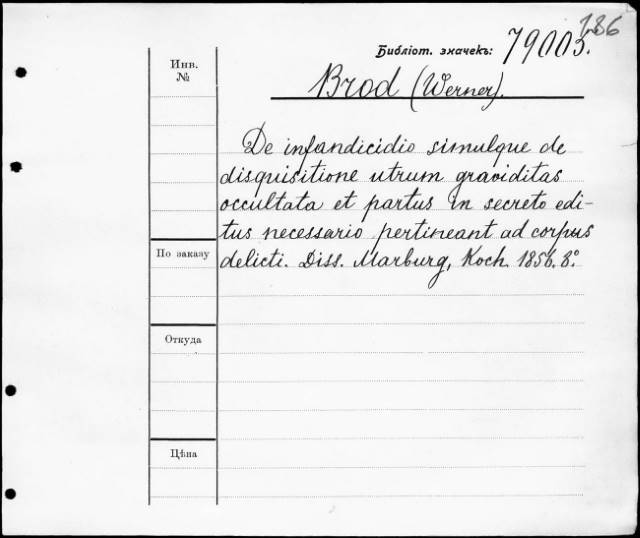 186
Библіот. значекъ: 79003.
Инв.
№
Brod (Werner).
De infandicidio simulque de
disquisitione utrum graviditas
occultata et partus in secreto edi-
tus necessario pertineant ad corpus
delicti. Diss. Marburg, Koch. 1856. 8°.
По заказу
Откуда
Цѣна